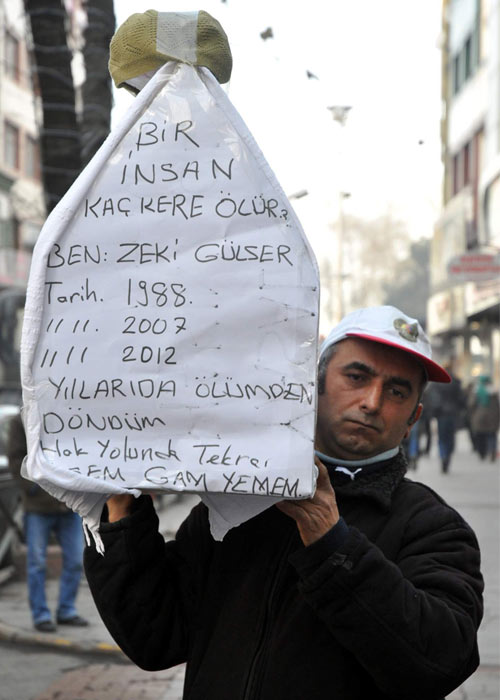 BİR
İNSAN
KAÇ KERE ÖLÜR?
BEN: ZEKİ GÜLSER
Tarih. 1988.
// //. 2007
// // 2012
YILLARIDA ÖLÜMDEN
DÖNDÜM
Hak Yolunda Tekrar
GAM YEMEM